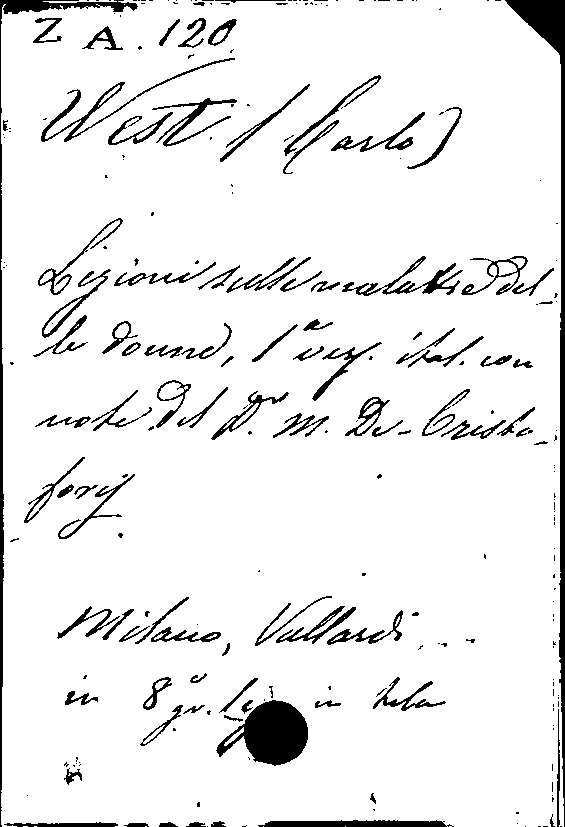 Z A. 120
West (Carlo)
Lezioni sulle malattie del-
le donne, 1ª vers. ital. con
note del Dr. M. De-Cristo-
foris
Milano, Vallardi
in 8º gr. leg in tela